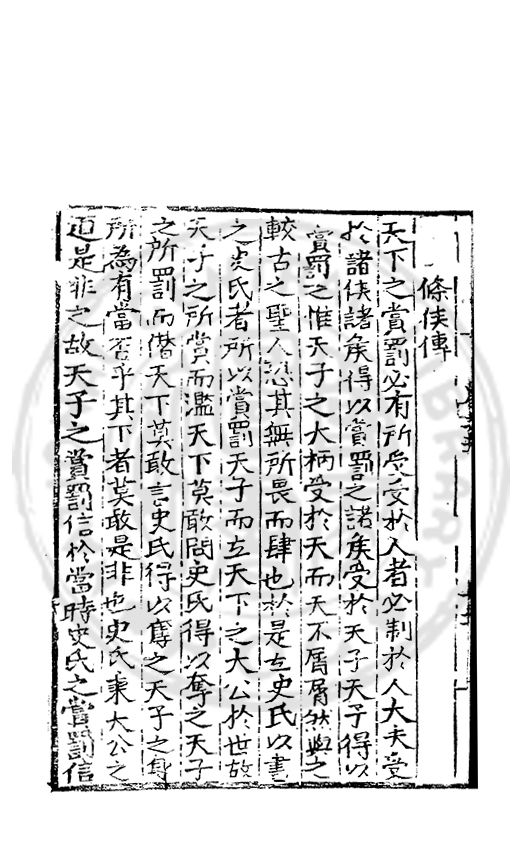 條侯傳
天下之賞罰必有所受受於人者必制於人大夫受
於諸侯諸侯得以賞罰之諸侯受於天子天子得以
賞罰之惟天子之大柄受於天而天不屑屑然與之
較古之聖人恐其無所畏而肆也於是立史氏以書
之史氏者所以賞罰天子而立天下之大公於世故
天子之所賞而濫天下莫敢問史氏得以奪之天子
之所罰而僭天下莫敢言史氏得以奪之天子之身
所為有當否乎其下者莫敢是非也史氏秉大公之
道是非之故天子之賞罰信於當時史氏之賞罰信